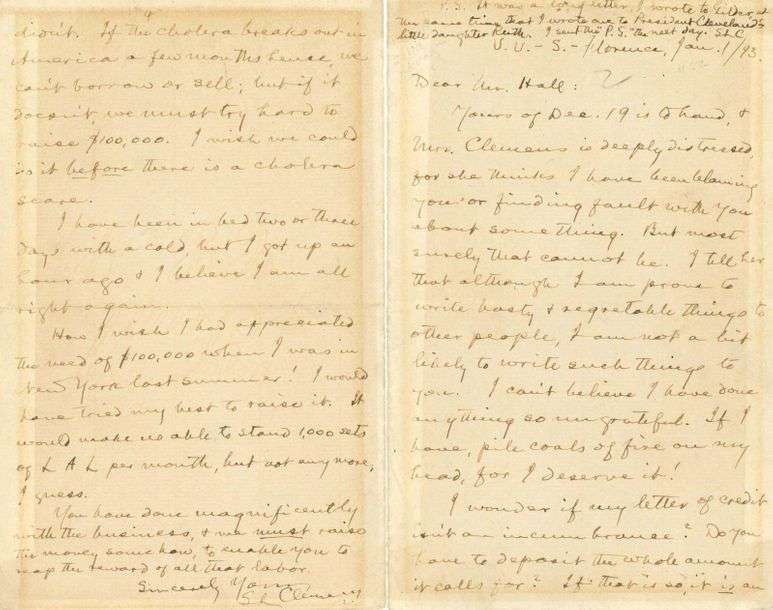 P.S. It was a long letter, I wrote to Gilder, at
the same time that I wrote one to President Cleveland's
little daughter Ruth. I sent the P.S. the next day. SLC
V.V. - S. - Florence, Jan. 1/93.
Dear Mr. Hall:
Yours of Dec. 19 is to hand, &
Mrs. Clemens is deeply distressed,
for she thinks I have been blaming
you or finding fault with you
about something. But most
surely that cannot be. I tell her
that although I am prone to
write hasty & regretable things to
other people, I am not a bit
likely to write such things to
you. I can't believe I have done
anything so ungrateful. If I
have, pile coals of fire on my
head, for I deserve it!
I wonder if my letter of credit
isn't an incumbrance? Do you
have to deposit the whole amount
it calls for? If that is so, it is an
4
didn't. If the cholera breaks out in
America a few months hence, we
can't borrow or sell; but if it
doesn't, we must try hard to
raise $100,000. I wish we could
do it before there is a cholera
scare.
I have been in bed two or three
days with a cold, but I got up an
hour ago & I believe I am all
right again.
How I wish I had appreciated
the need of $100,000 when I was in
New York last summer! I would
have tried my best to raise it. It
would make us able to stand 1,000 sets
of L A L per month, but not any more,
I guess.
You have done magnificently
with the business, & we must raise
the money somehow, to enable you to
reap the reward of all that labor.
Sincerely Yours
SL Clemens